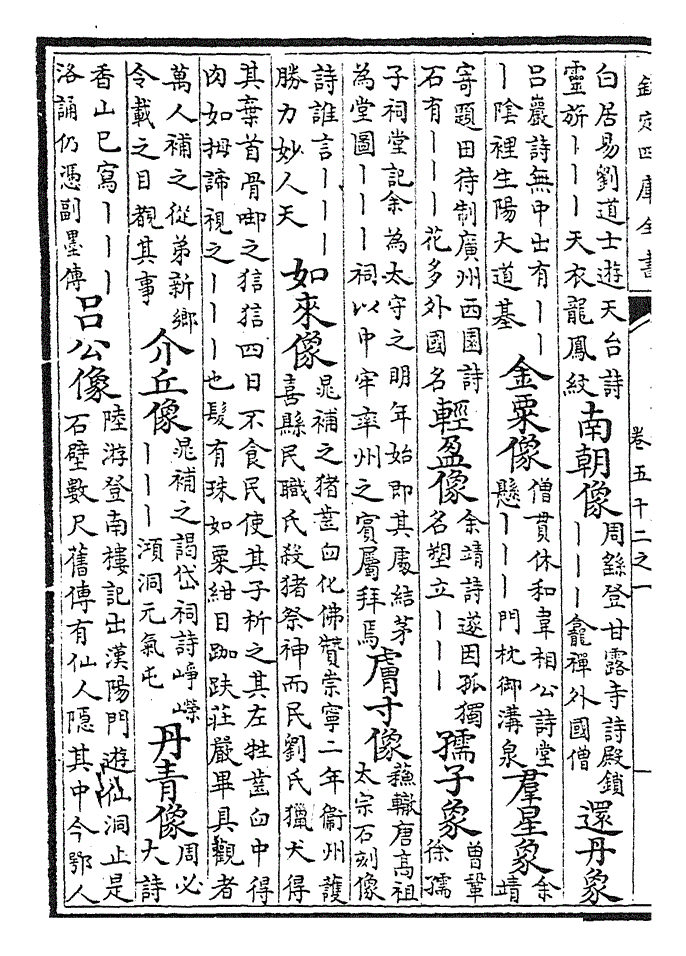 欽定四庫全書 卷五十二之一
白居易劉道士遊天台詩靈旂｜｜｜天衣龍鳳紋 南朝像 周繇登甘露寺詩殿鎖｜｜｜龕禪外國僧 還丹象
呂巖詩無中出有｜｜｜陰裡生陽大道基 金粟像 僧貫休和韋相公詩堂懸｜｜｜門枕御溝泉 羣星象 余靖
寄題田待制廣州西園詩石有｜｜｜花多外國名 輕盈像 余靖詩遂因孤獨名塑立｜｜｜ 孺子象 曾鞏徐孺
子祠堂記余為太守之明年始即其處結茅為堂圖｜｜｜祠以中牢率州之賓屬拜焉 膚寸像 蘇轍唐高祖太宗石刻像
詩誰言｜｜｜勝力妙人天 如來像 晁補之猪齒臼化佛贊崇寧二年衞州護喜縣民職氏殺猪祭神而民劉氏獵犬得
其棄首骨啣之狺狺四日不食民使其子析之其左牡齒臼中得肉如拇諦視之｜｜｜也髮有珠如粟紺目跏趺莊嚴畢具觀者
萬人補之從弟新鄉令載之目覩其事 介丘像 晁補之謁岱祠詩崢嶸｜｜｜澒洞元氣屯 丹青像 周必大詩
香山已寫｜｜｜洛誦仍憑副墨傳 呂公像 陸游登南樓記出漢陽門遊仙洞止是石壁數尺舊傳有仙人隱其中今鄂人